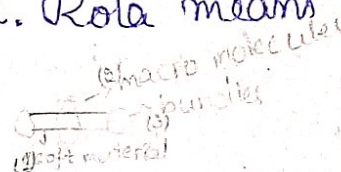 . Kola means
(2) macro molecules
bundles
(3)
(1) soft material